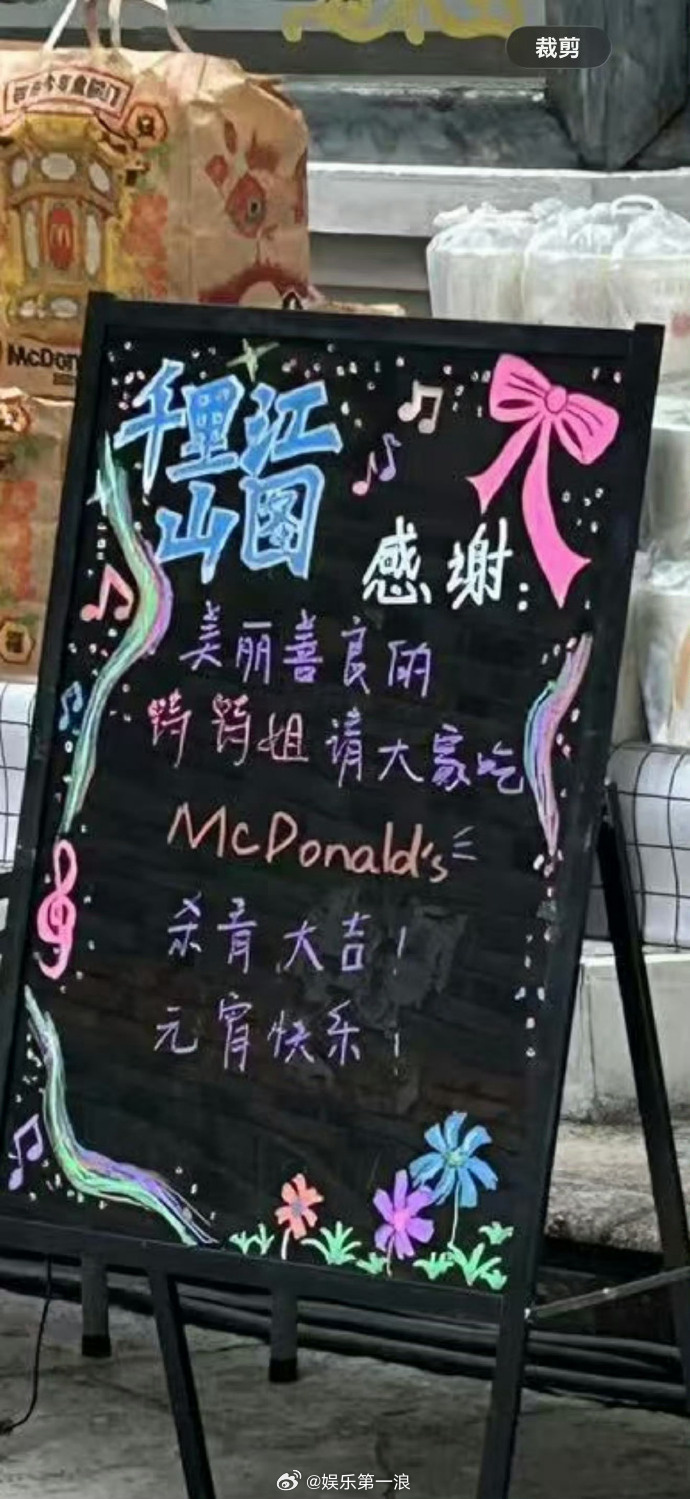 裁剪
McDon
千里江
山图
感谢:
美丽善良的
姐请大家吃
McDonald's
杀青大吉！
元宵快乐！
@娱乐第一浪